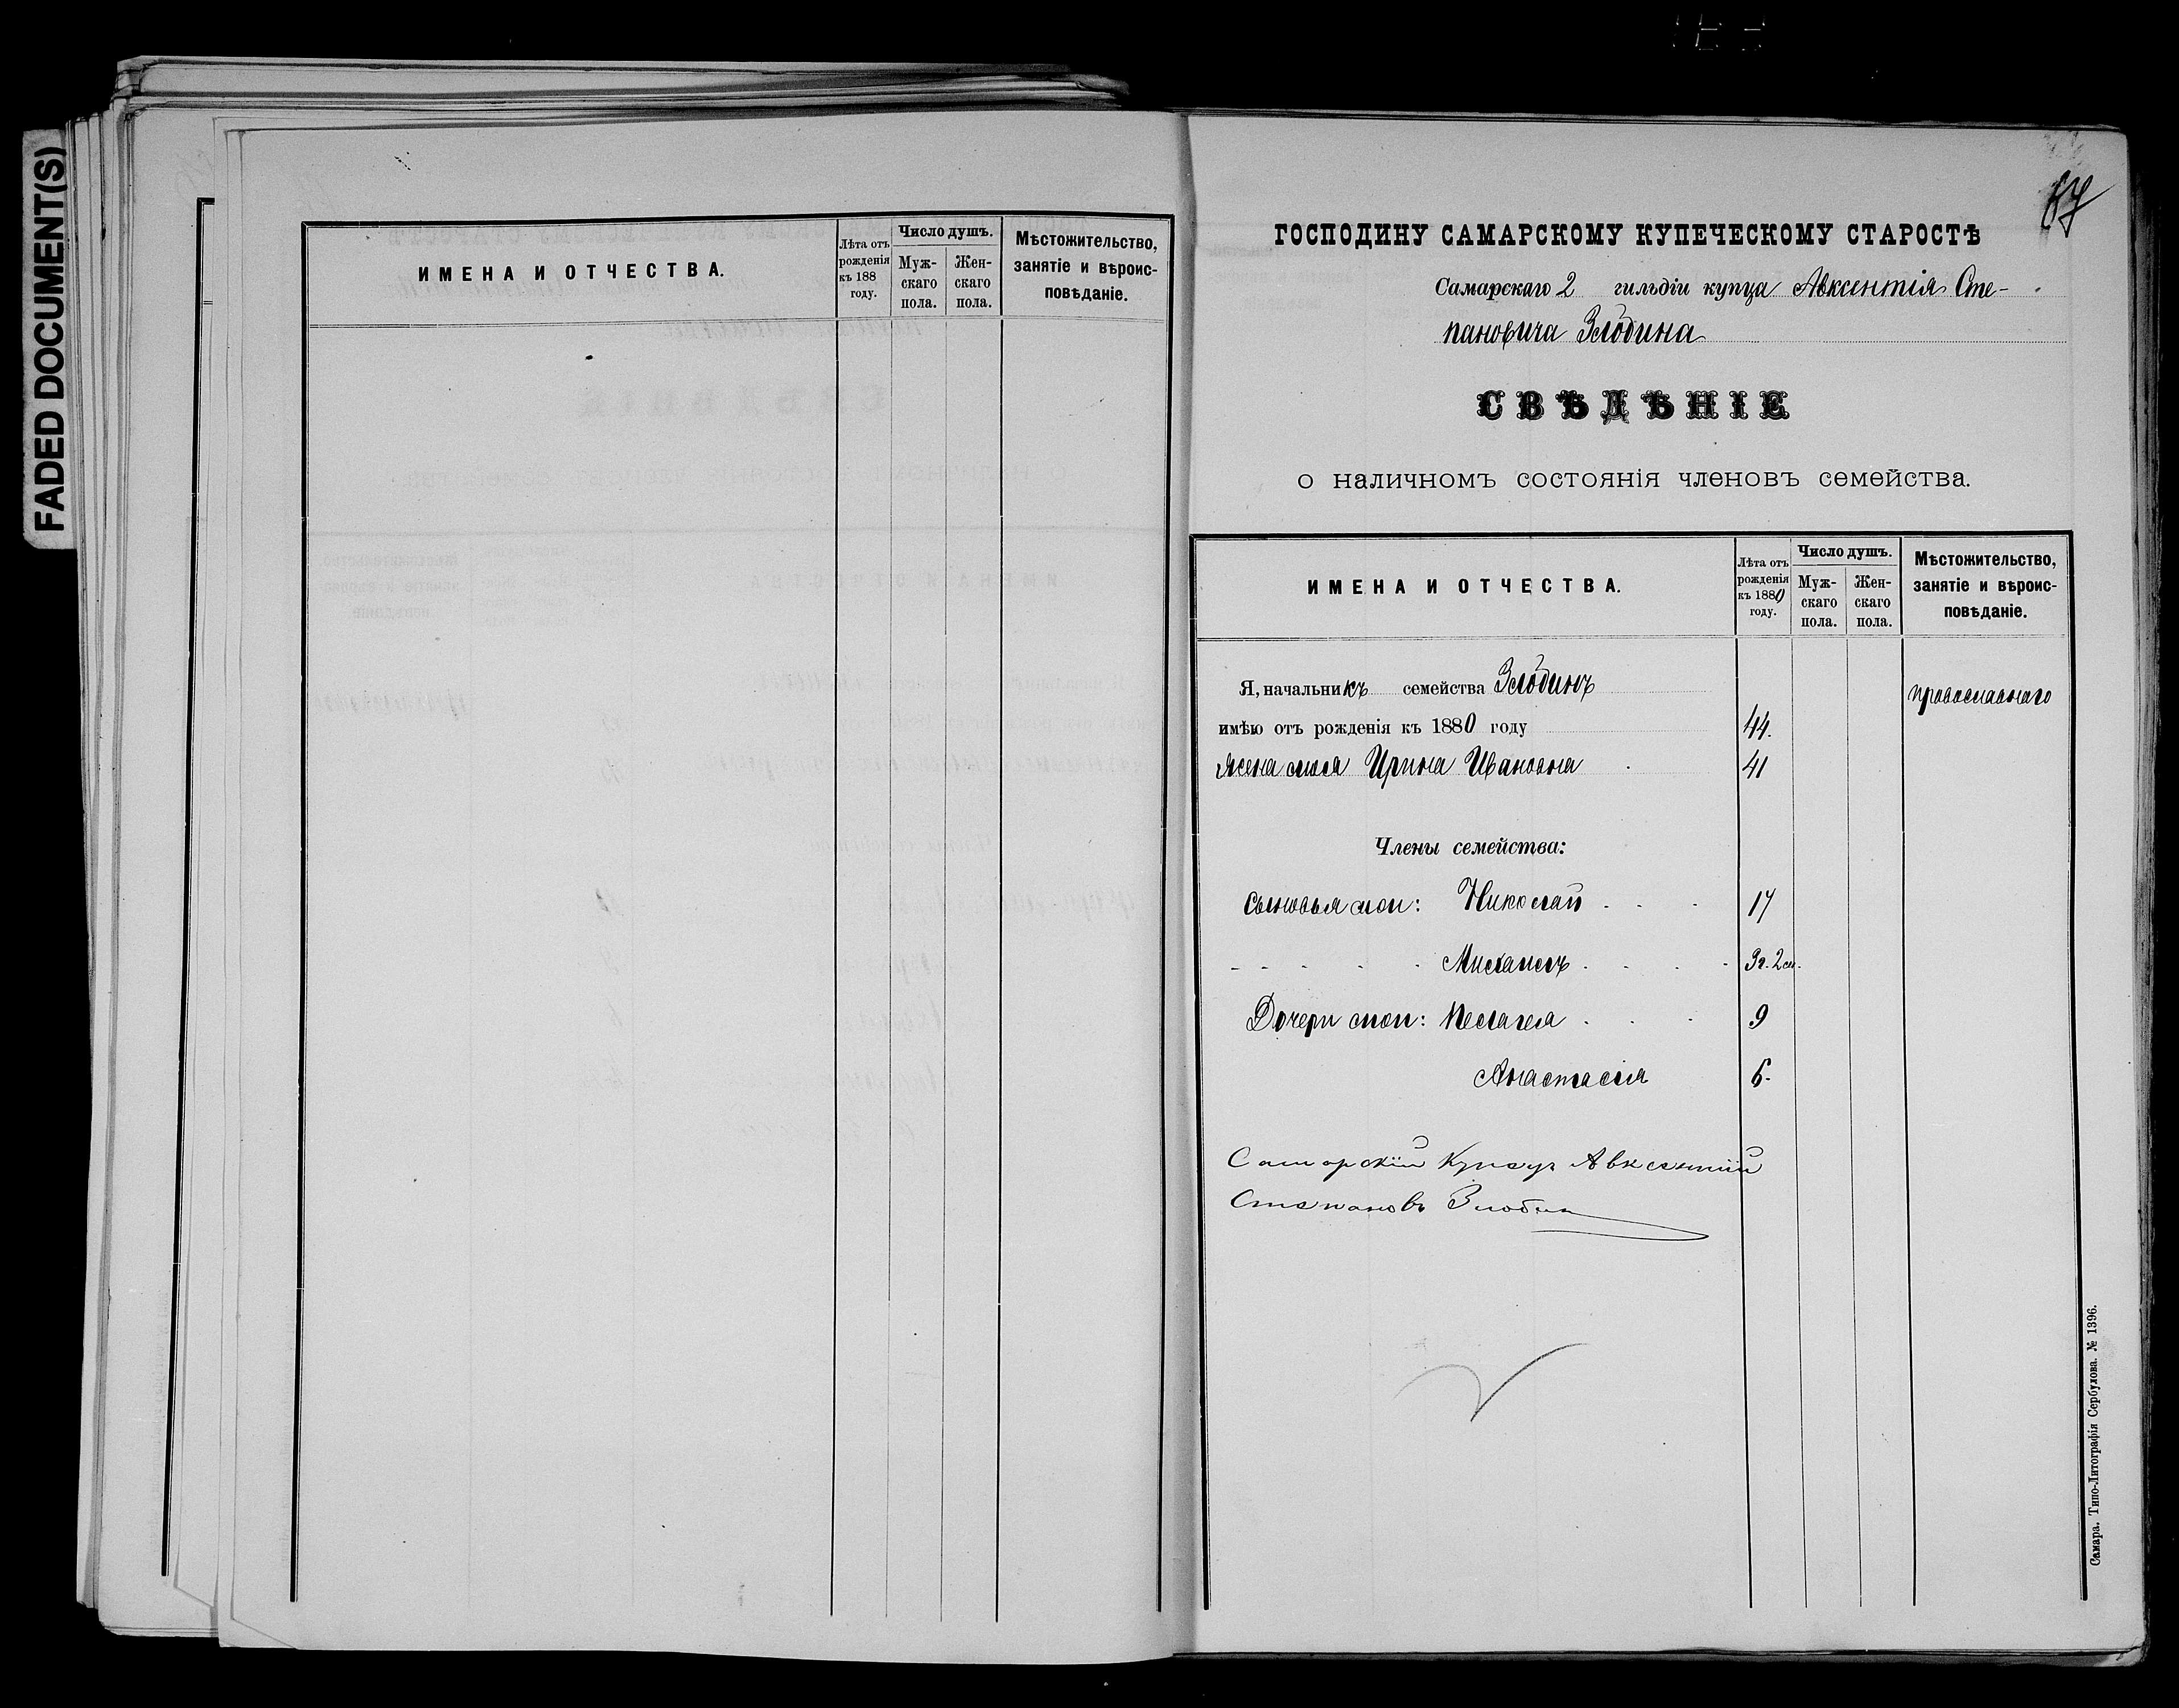 FADED DOCUMENT(S)
ИМЕНА И ОТЧЕСТВА.
Лѣта отъ рожденія къ 188 году.
Число душъ.
Муж- скаго пола.
Жен- скаго пола.
Мѣстожительство, занятіе и вѣроис- повѣданіе.
67
ГОСПОДИНУ САМАРСКОМУ КУПЕЧЕСКОМУ СТАРОСТѢ
Самарскаго 2 гильдіи купца Авксентія Сте-
пановича Злобина
СВѢДѢНІЕ
о наличномъ состоянія членовъ семейства.
ИМЕНА И ОТЧЕСТВА.
Лѣта отъ рожденія къ 1880 году.
Число душъ.
Муж- скаго пола.
Жен- скаго пола.
Мѣстожительство, занятіе и вѣроис- повѣданіе.
Я, начальникъ семейства Злобинъ православнаго
имѣю отъ рожденія къ 1880 году 44.
Жена моя Ирина Ивановна 41
Члены семейства:
Сыновья мои: Николай 17
Михаилъ 3г. 2м.
Дочери мои: Пелагея 9
Анастасія 6.
Самарскій Купецъ Авксентий
Степановъ Злобин
Самара. Типо-Литографія Сербулова. № 1396.